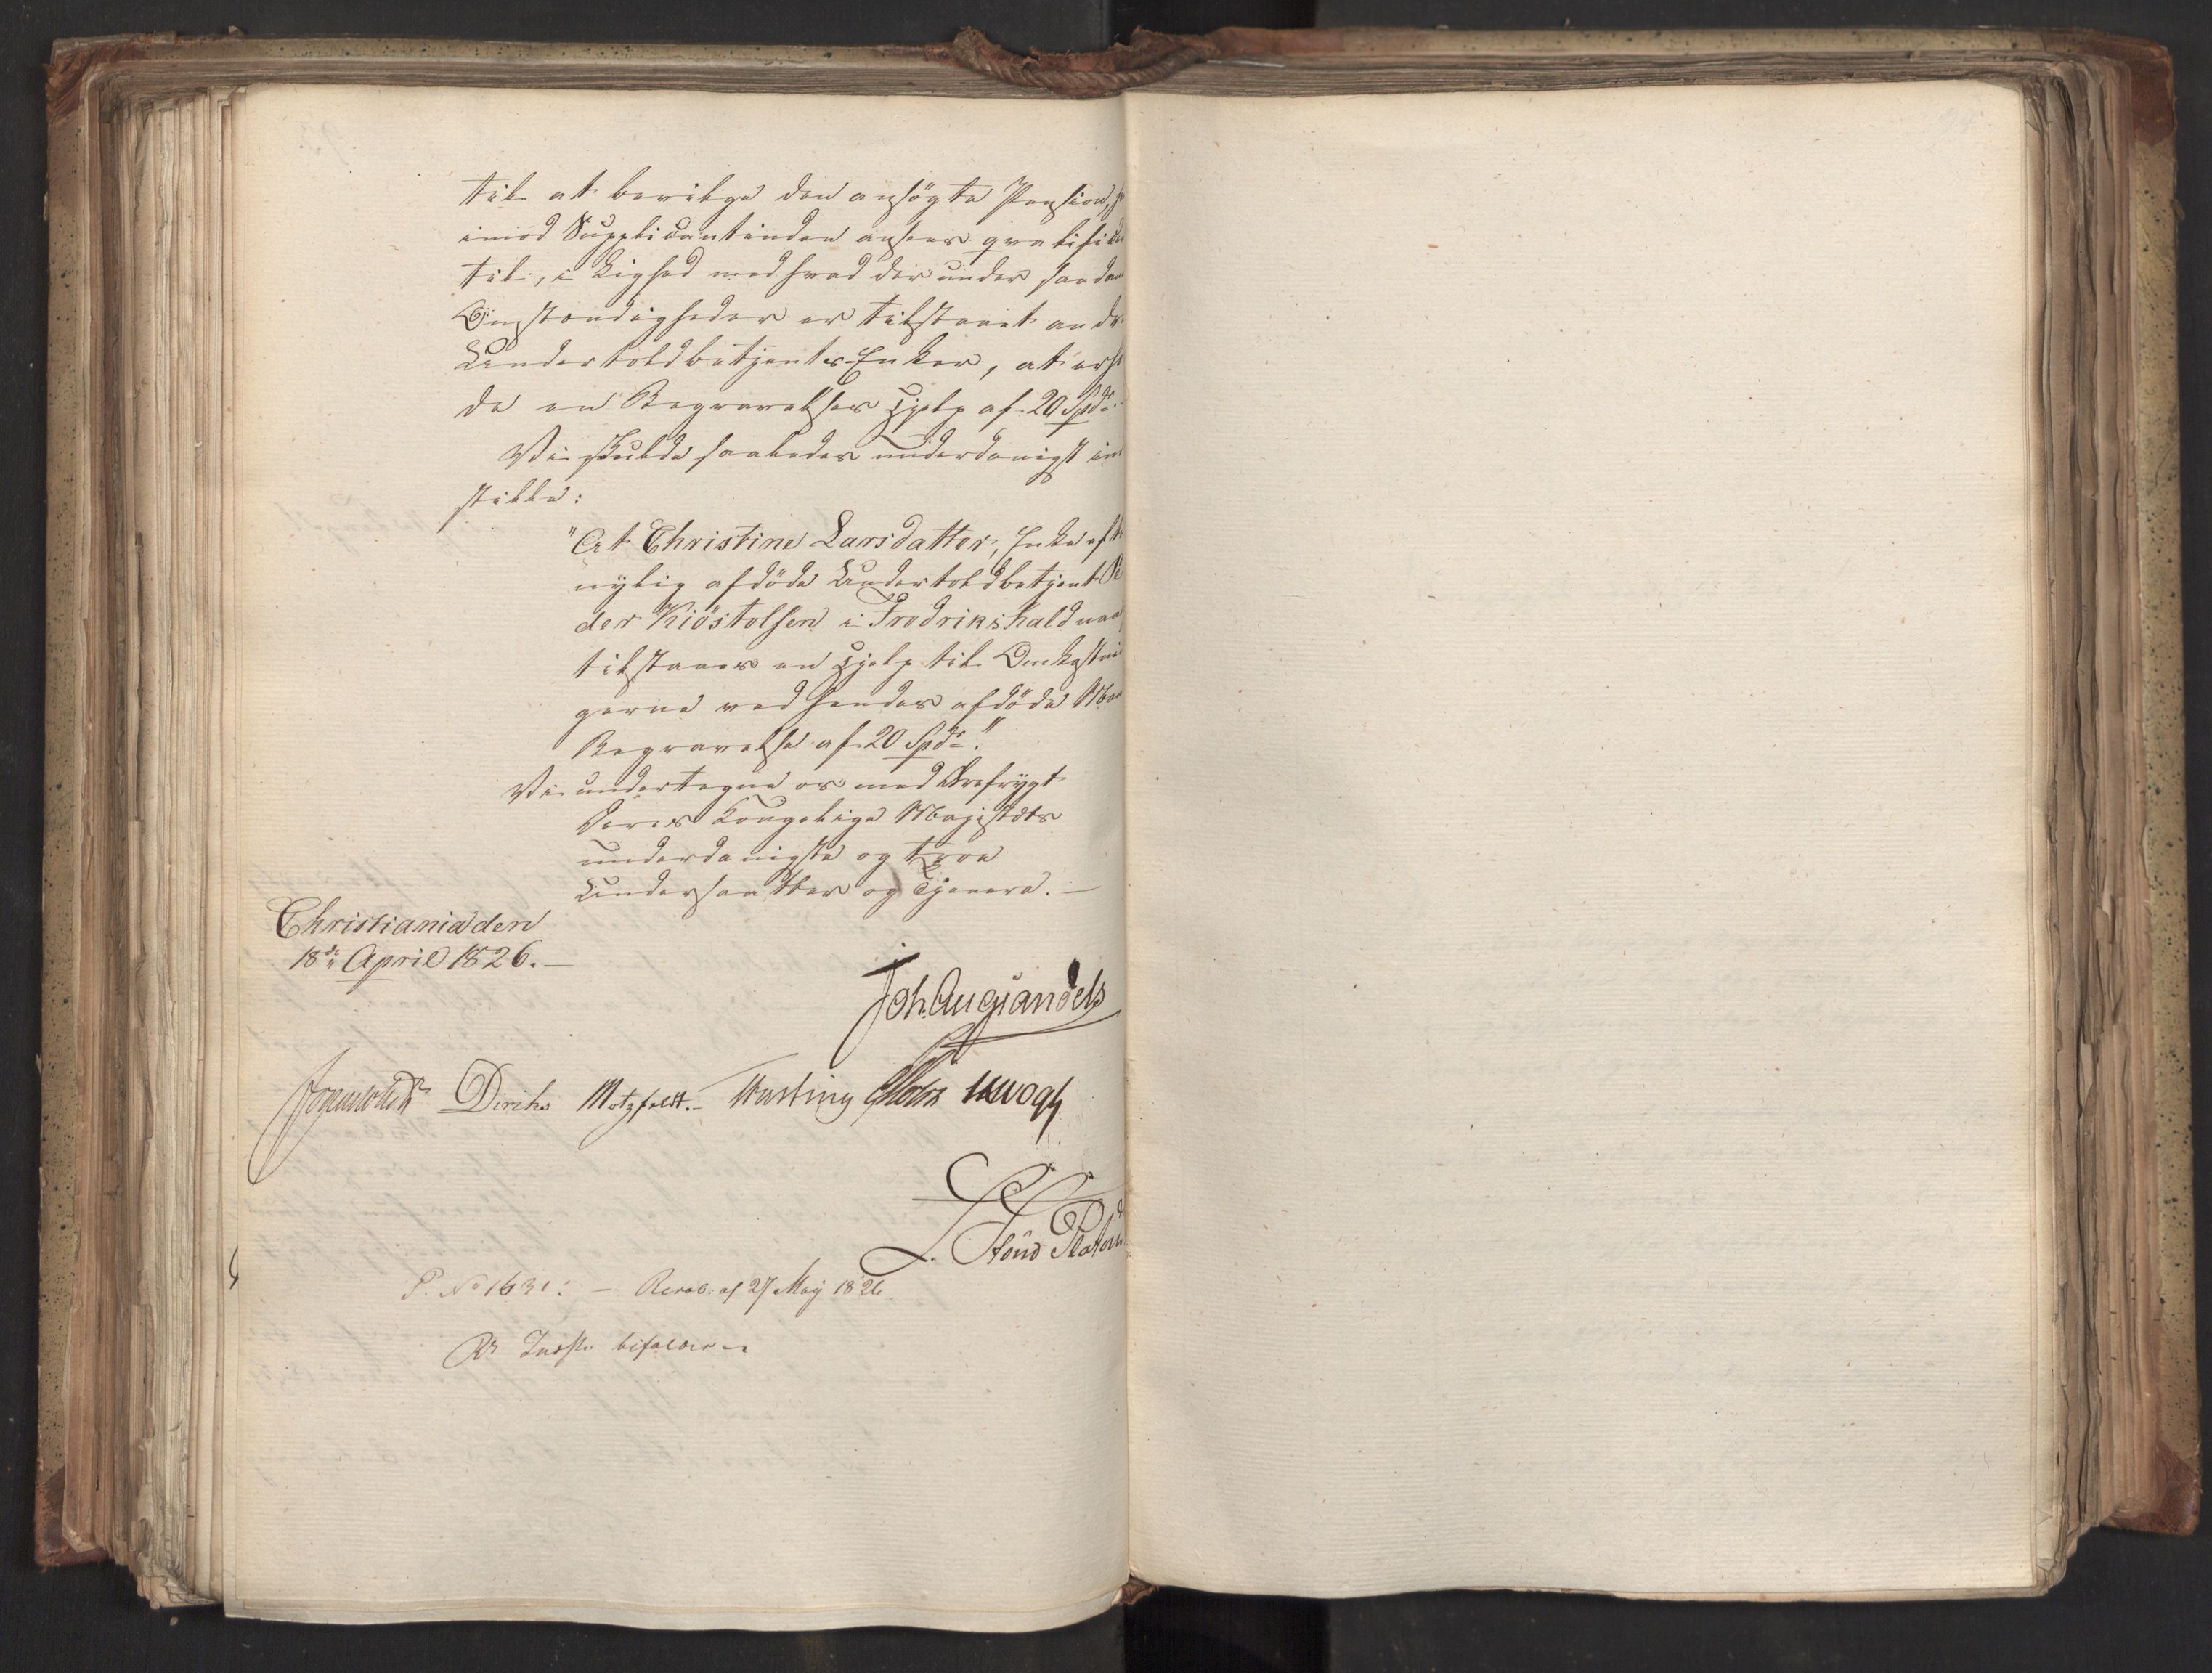 til at bevilge den ansögte Pension, h
imod Supplicantinden ansees qvalifice
til, i Lighed med hvad der under saadan
Omstændigheder er tilstaaet andr
Undertoldbetjentes Enker, at erhol
de en Begravelses Hjelp af 20 Spdr.
Vi skulde saaledes underdanigst ind
stille:
"At Christine Larsdatter, Enke eft
nylig afdöde Undertoldbetjent Pe
der Kiöstolsen i Fredrikshald naad
tilstaaes en Hjelp til Omkostnin
gerne ved hendes afdöde Man
Begravelse af 20 Spdr."
Vi undertegne os med Ærefrygt
Deres Kongelige Majestæts
underdanigste og troe
Undersaatter og Tjenere. —
Christiania den
18de April 1826. —
Joh. Aug Sandels
Sommerhielm Diriks Motzfeldt. — Fasting Holst JHVogt
L. Stoud Platou
P. No 1631: — Resol: af 27 May 1826
At Indst. bifaldes